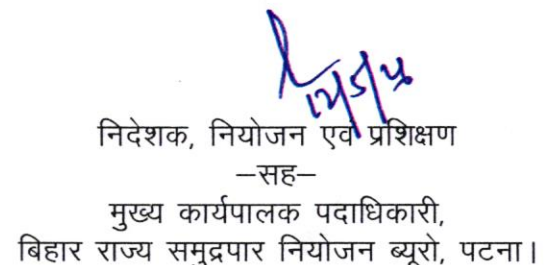 निदेशक, नियोजन एवं प्रशिक्षण
–सह–
मुख्य कार्यपालक पदाधिकारी,
बिहार राज्य समुद्रपार नियोजन ब्यूरो, पटना।